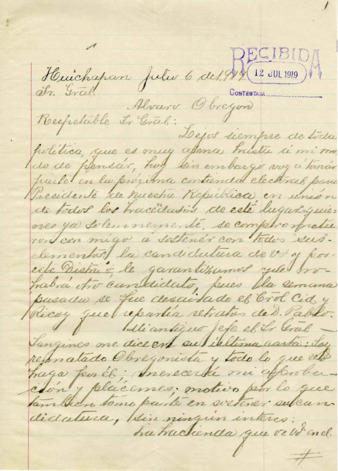 RECIBIDA
12 JUL 1919
CONTESTADA
Huichapan Julio 6 de 1919
Sr. Gral.
Alvaro Obregon
Respetable Sr Gral:
Lejos siempre de toda
politica, que es muy agena hasta á mi mo
do de pensar, hoy sin embargo voy á tomar
parte en la proxima contienda electoral, para
Presidente de nuestra Republica en union
de todos los hacendados de este lugar quie
nes ya solemnemente, se comprometie
ron con migo a sostener con todos sus
elementos, la candidatura de vd y por
este Distrito, le garantizamos que no
habrá otro candidato, pues la semana
pasada se fue desairado el Crol Cid y
Ricoy que repartia retratos de D. Pablo.
Mi antiguo jefe el Sr Gral
Sangines me dice en su ultima carta: Soy
rematado Obregonista y todo lo que vd
haga por él, merecerá mi aproba
ción y plácemes; motivo por lo que
tambien tomo parte en sostener su can
didatura, sin ningún interes.
La hacienda que ve vd en el